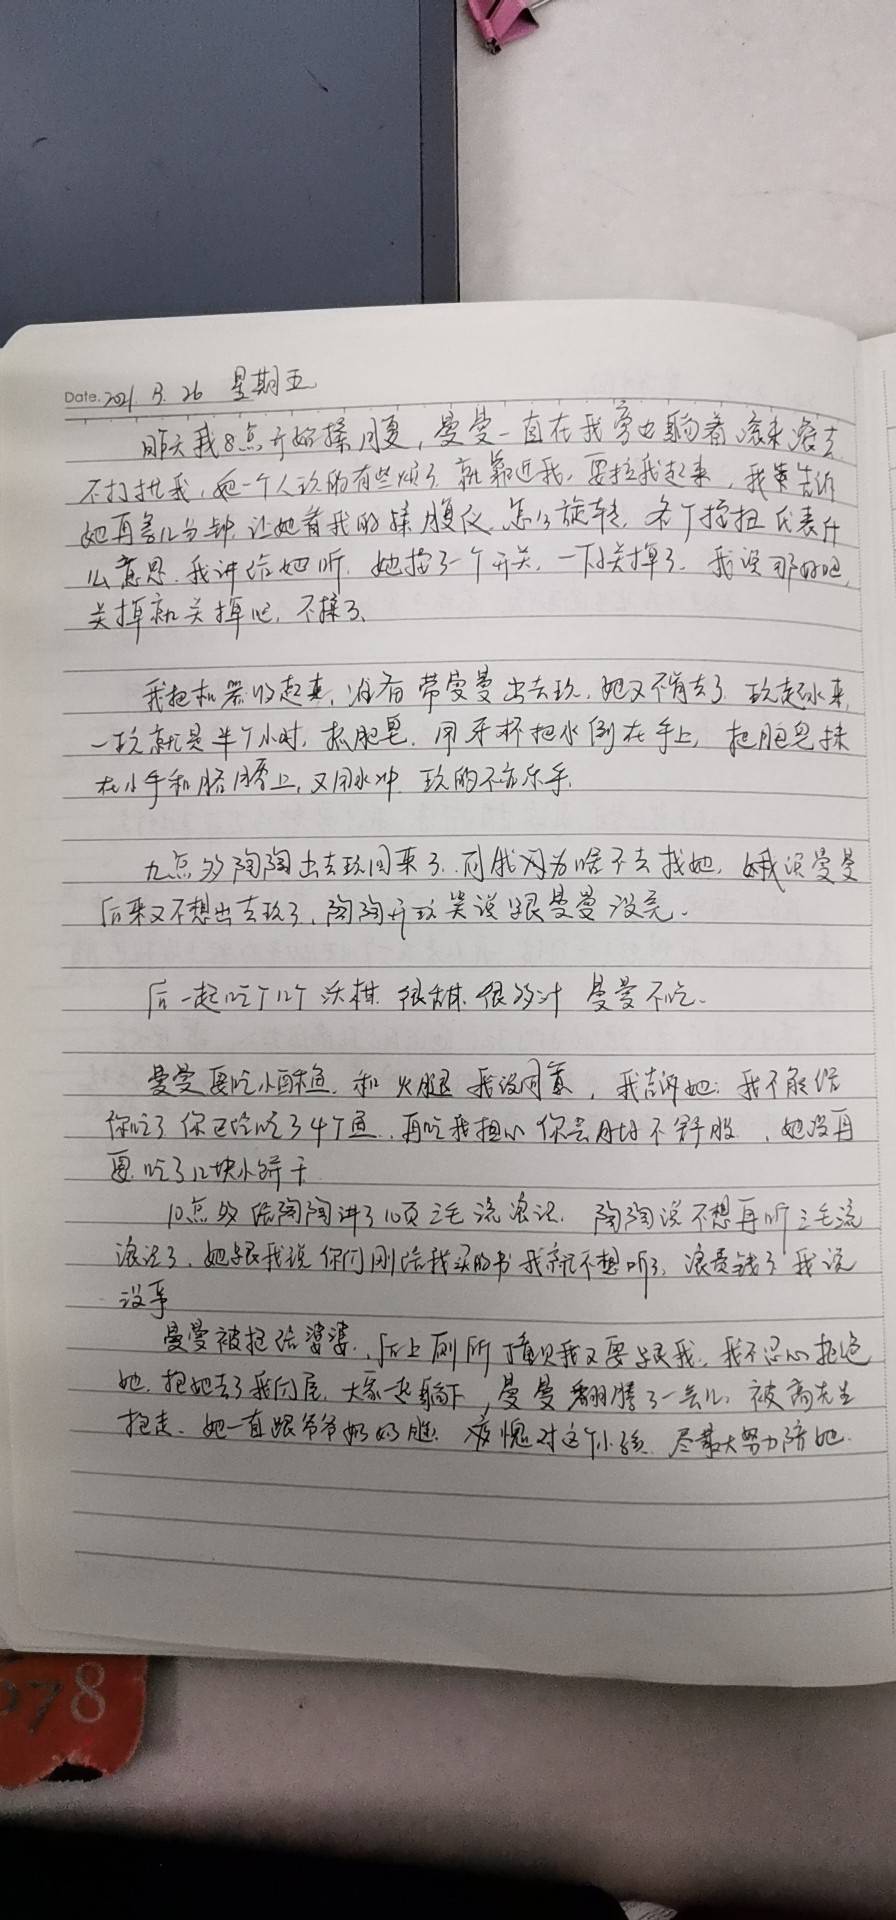 Date. 2021. 3. 26 星期五
昨天我8点开始揉腹，曼曼一直在我旁边躺着滚来滚去
不打扰我，她一个人玩的有些烦了，就靠近我，要拉我起来，我告诉
她再等几分钟，让她看我的揉腹仪，怎么旋转，各个按扭代表什
么意思，我讲给她听，她按了一个开关，一下关掉了，我说那好吧，
关掉就关掉吧，不揉了、
我把机器收起来，准备带曼曼出去玩，她又不肯去了，玩起水来，
一玩就是半个小时，抓肥皂，用牙杯把水倒在手上，把肥皂抹
在小手和胳膊上，又用水冲，玩的不亦乐乎，
九点多陶陶出去玩回来了，问我为啥不去找她，我说曼曼
后来又不想出去玩了，陶陶开玩笑说跟曼曼没完。
后一起吃了几个沃柑，很甜，很多汁 曼曼不吃。
曼曼要吃小酥鱼，和火腿 我没同意，我告诉她：我不能给
你吃了 你已经吃了4个鱼，再吃我担心你会肚子不舒服，她没再
要 吃了几块小饼干
10点多给陶陶讲了10页三毛流浪记，陶陶说不想再听三毛流
浪记了，她跟我说你们刚给我买的书我就不想听了，浪费钱了 我说
没事
曼曼被抱给婆婆，后上厕所 撞见我又要跟我，我不忍心拒绝
她，把她去了我们屋，大家一起躺下，曼曼翻腾了一会儿，被高先生
抱走、她一直跟爷爷奶奶睡，愧对这个小孩，尽最大努力陪她.
578